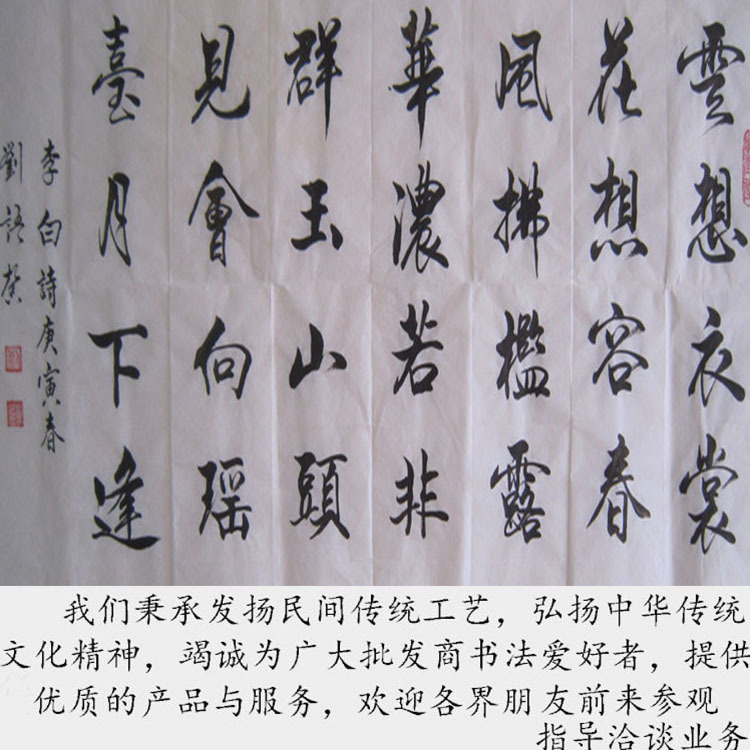 雲想衣裳
花想容春
風拂檻露
華濃若非
群玉山頭
見會向瑶
臺月下逢
李白詩庚寅春
我们秉承发扬民间传统工艺，弘扬中华传统
文化精神，竭诚为广大批发商书法爱好者，提供
优质的产品与服务，欢迎各界朋友前来参观
指导洽谈业务